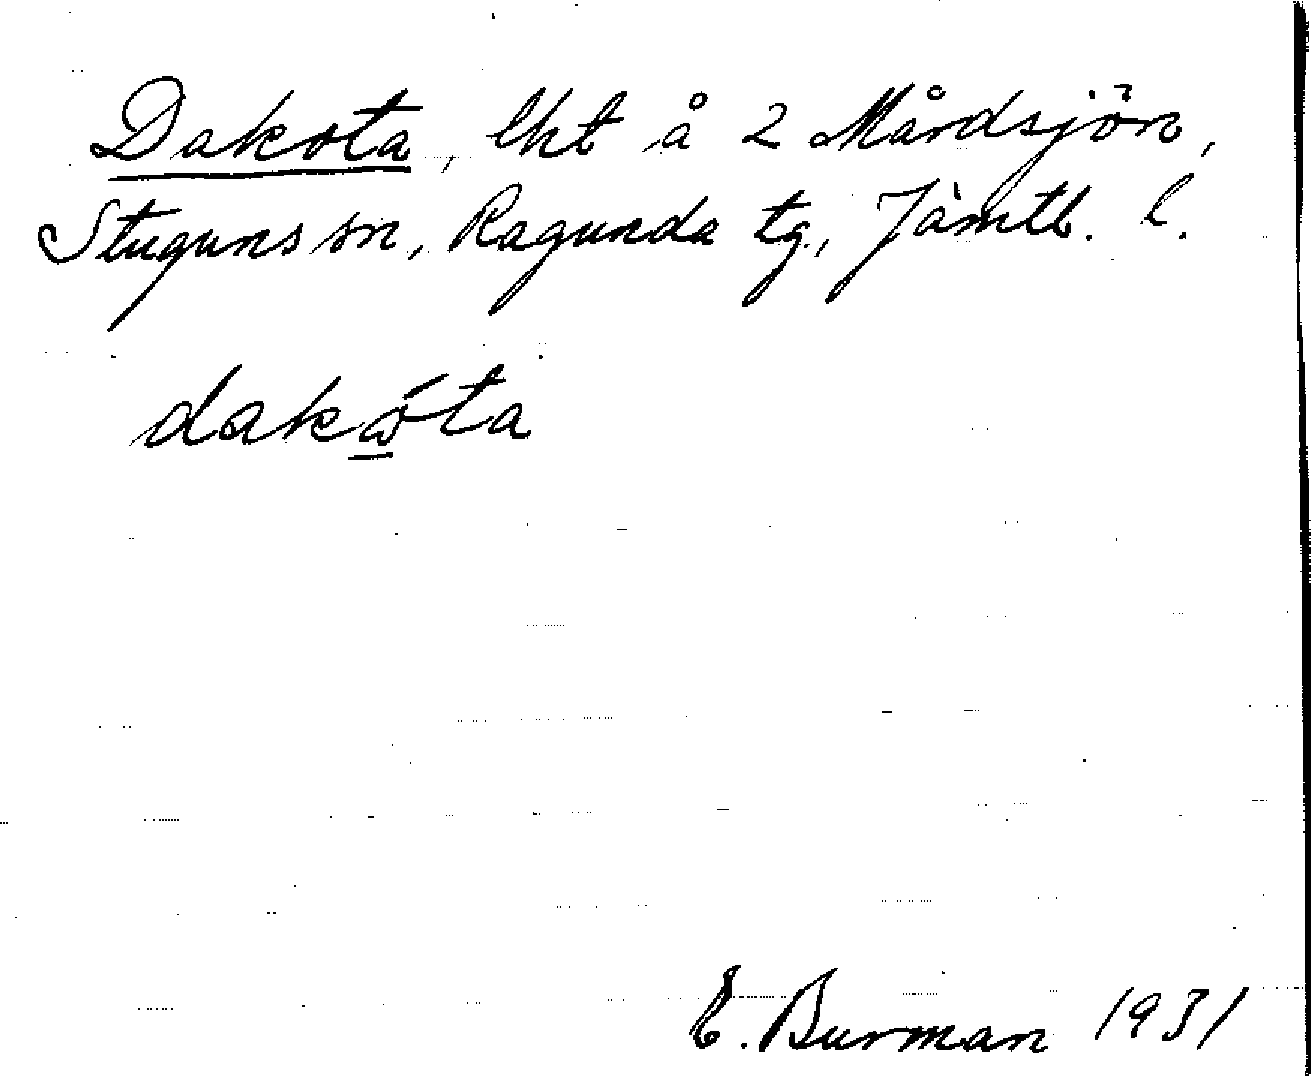 Dakota, lht å 2 Mårdsjön,
Stuguns sn, Ragunda tg, Jämtl. l.
dakώ̲ta
E. Burman 1931